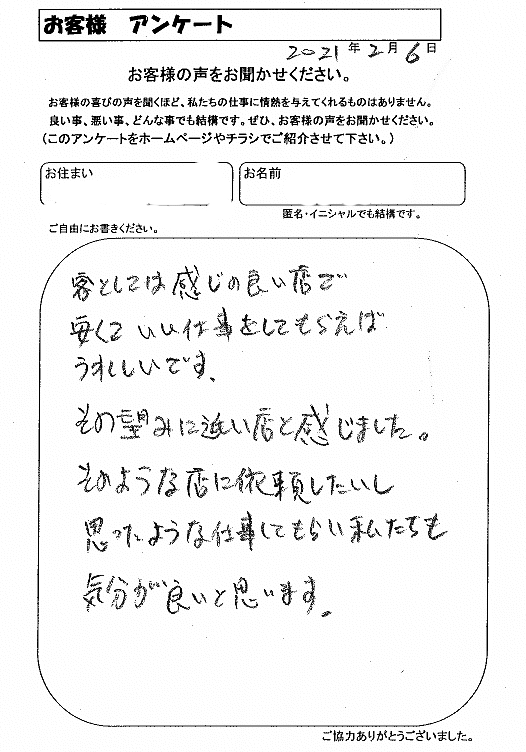 お客様 アンケート
2021年2月6日
お客様の声をお聞かせください。
お客様の喜びの声を聞くほど、私たちの仕事に情熱を与えてくれるものはありません。
良い事、悪い事、どんな事でも結構です。ぜひ、お客様の声をお聞かせください。
(このアンケートをホームページやチラシでご紹介させて下さい。)
お住まい お名前
匿名・イニシャルでも結構です。
ご自由にお書きください。
客としては感じの良い店で
安くていい仕事をしてもらえば
うれしいです。
その望みに近い店と感じました。
そのような店に依頼したいし
思ったような仕事してもらい私たちも
気分が良いと思います。
ご協力ありがとうございました。